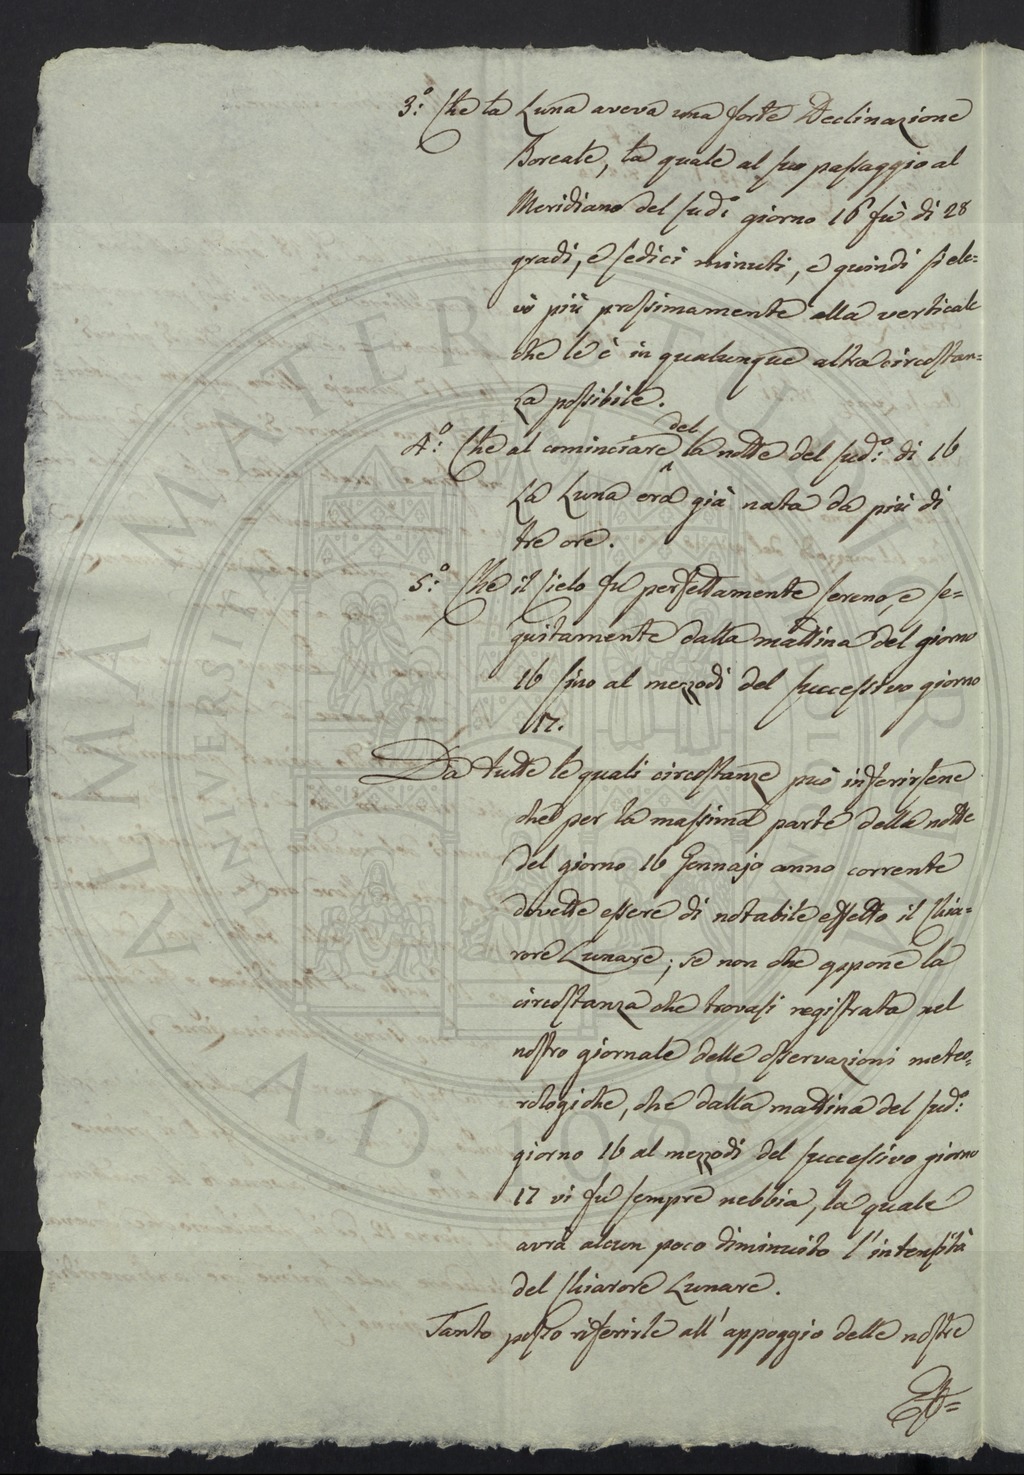 3.º Che la Luna aveva una forte Declinazione
Boreale, la quale al suo passaggio al
Meridiano del sud.º giorno 16 fù di 28
gradi, e sedici minuti, e quindi si ele=
vò più prossimamente alla verticale
che le è in qualunque altra circostan=
za possibile.
4.º Che al cominciare del la notte del sud.º di 16
La Luna era già nata da più di
tre ore.
5.º Che il Cielo fu perfettamente sereno, e se=
guitamente dalla mattina del giorno
16 sino al mezzodì del successivo giorno
17.
Da tutte le quali circostanze può inferirsene
che per la massima parte della notte
del giorno 16 Gennajo anno corrente
dovette essere di notabile effetto il Chia=
rore Lunare; se non che oppone la
circostanza che trovasi registrata nel
nostro giornale delle osservazioni meteo=
rologiche, che dalla mattina del sud.º
giorno 16 al mezzodì del successivo giorno
17 vi fu sempre nebbia, la quale
avrà alcun poco diminuito l'intensità
del Chiarore Lunare.
Tanto posso riferirle all'appoggio delle nostre
ALMA MATER STUDIORUM
UNIVERSITÀ
A.D. 1088